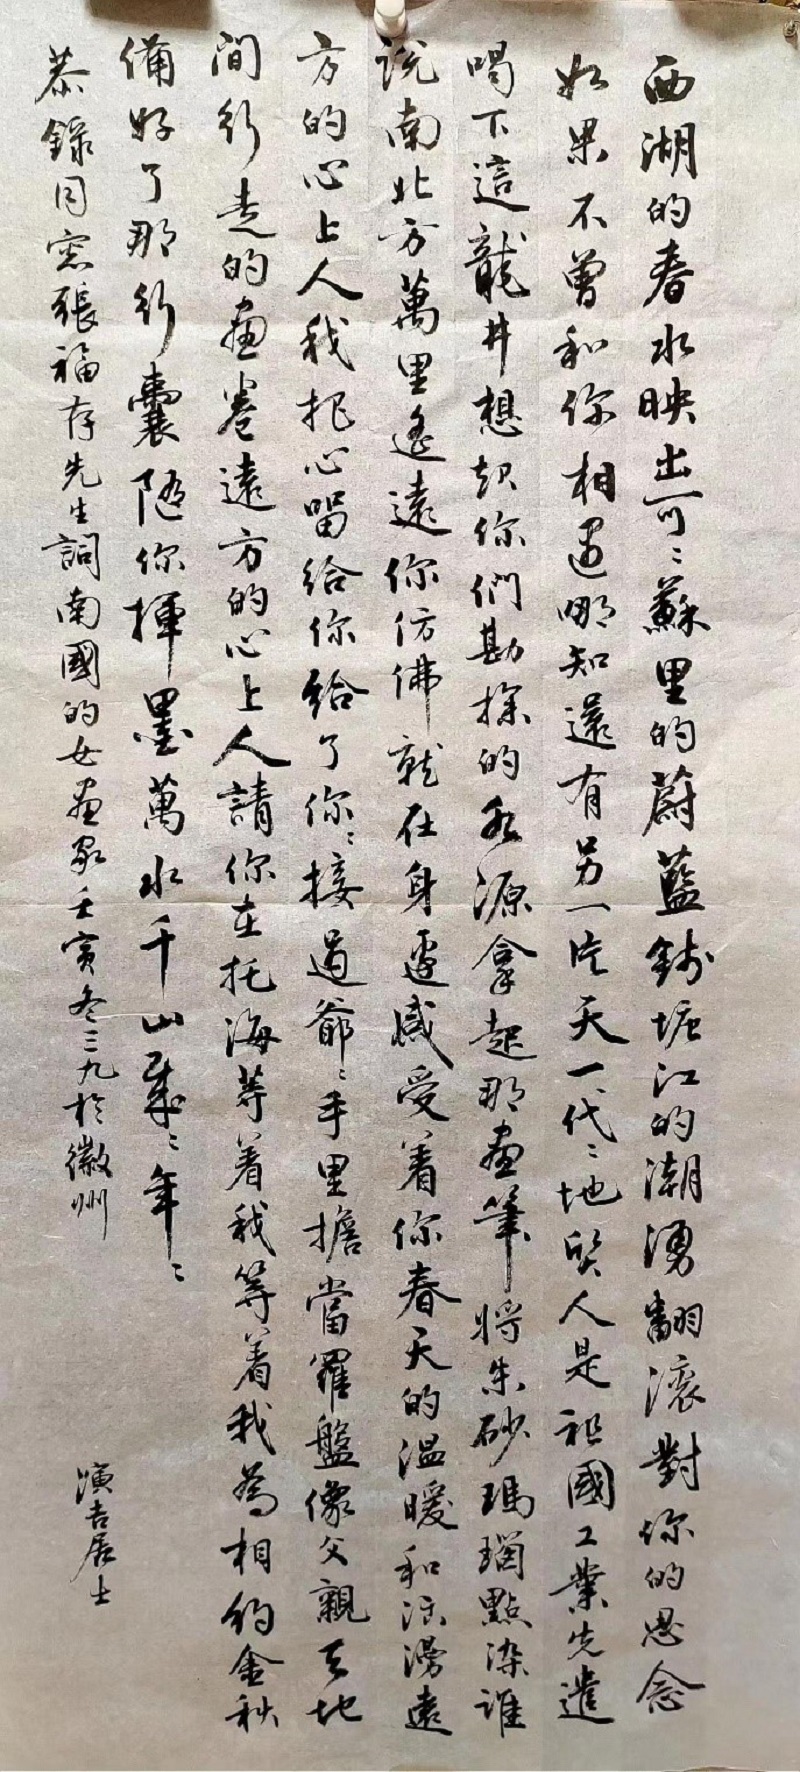 西湖的春水映出可〻蘇里的蔚藍錢塘江的潮湧翻滾對你的思念
如果不曾和你相遇哪知還有另一片天一代〻地質人是祖國工業先遣
喝下這龍井想起你們勘探的水源拿起那畫筆將朱砂瑪瑙點染誰
說南北方萬里遙遠你仿佛就在身邊感受着你春天的温暖和浪漫遠
方的心上人我把心留給你給了你〻接過爺〻手里擔當羅盤像父親天地
間行走的畫卷遠方的心上人請你在托海等着我等着我為相約金秋
備好了那行囊隨你揮墨萬水千山歲〻年〻
恭錄同窓張福存先生詞南國的女畫家壬寅冬三九於徽州
演吉居士